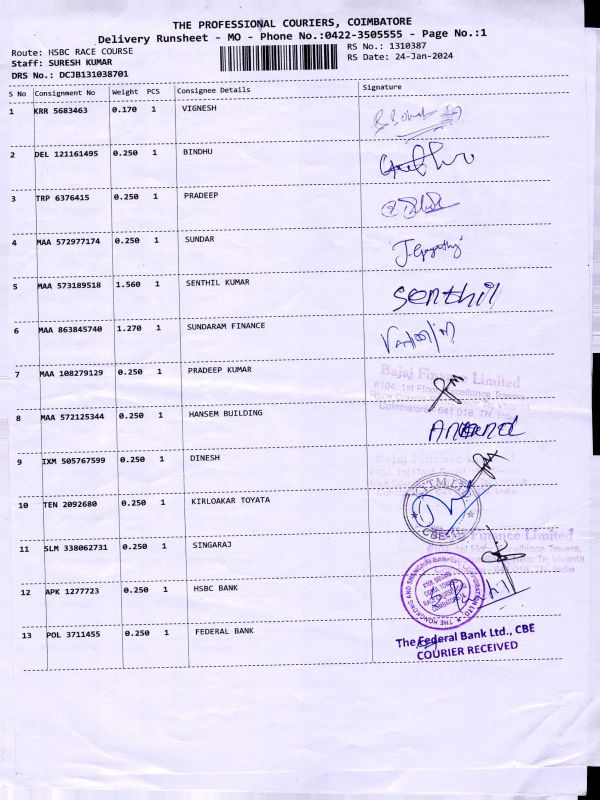 THE PROFESSIONAL COURIERS, COIMBATORE
Delivery Runsheet - MO - Phone No.:0422-3505555 - Page No.:1
Route: HSBC RACE COURSE
RS No.: 1310387
Staff: SURESH KUMAR
RS Date: 24-Jan-2024
DRS No.: DCJB131038701
S No Consignment No Weight PCS Consignee Details Signature
1 KRR 5683463 0.170 1 VIGNESH
2 DEL 121161495 0.250 1 BINDHU
3 TRP 6376415 0.250 1 PRADEEP
4 MAA 572977174 0.250 1 SUNDAR J. Gayathy
5 MAA 573189518 1.560 1 SENTHIL KUMAR Senthil
6 MAA 863845740 1.270 1 SUNDARAM FINANCE
7 MAA 108279129 0.250 1 PRADEEP KUMAR
Bajaj Finance Limited
#104, 1st Floor,
Coimbatore - 641 018, TN, India
8 MAA 572125344 0.250 1 HANSEM BUILDING Anand
9 IXM 505767599 0.250 1 DINESH
Bajaj Finance Limited
10 TEN 2092680 0.250 1 KIRLOAKAR TOYATA
CBE
11 SLM 338062731 0.250 1 SINGARAJ
Bajaj Finance Limited
TN, India
12 APK 1277723 0.250 1 HSBC BANK
THE HONGKONG AND SHANGHAI BANKING CORPORATION LTD.
13 POL 3711455 0.250 1 FEDERAL BANK
The Federal Bank Ltd., CBE
COURIER RECEIVED